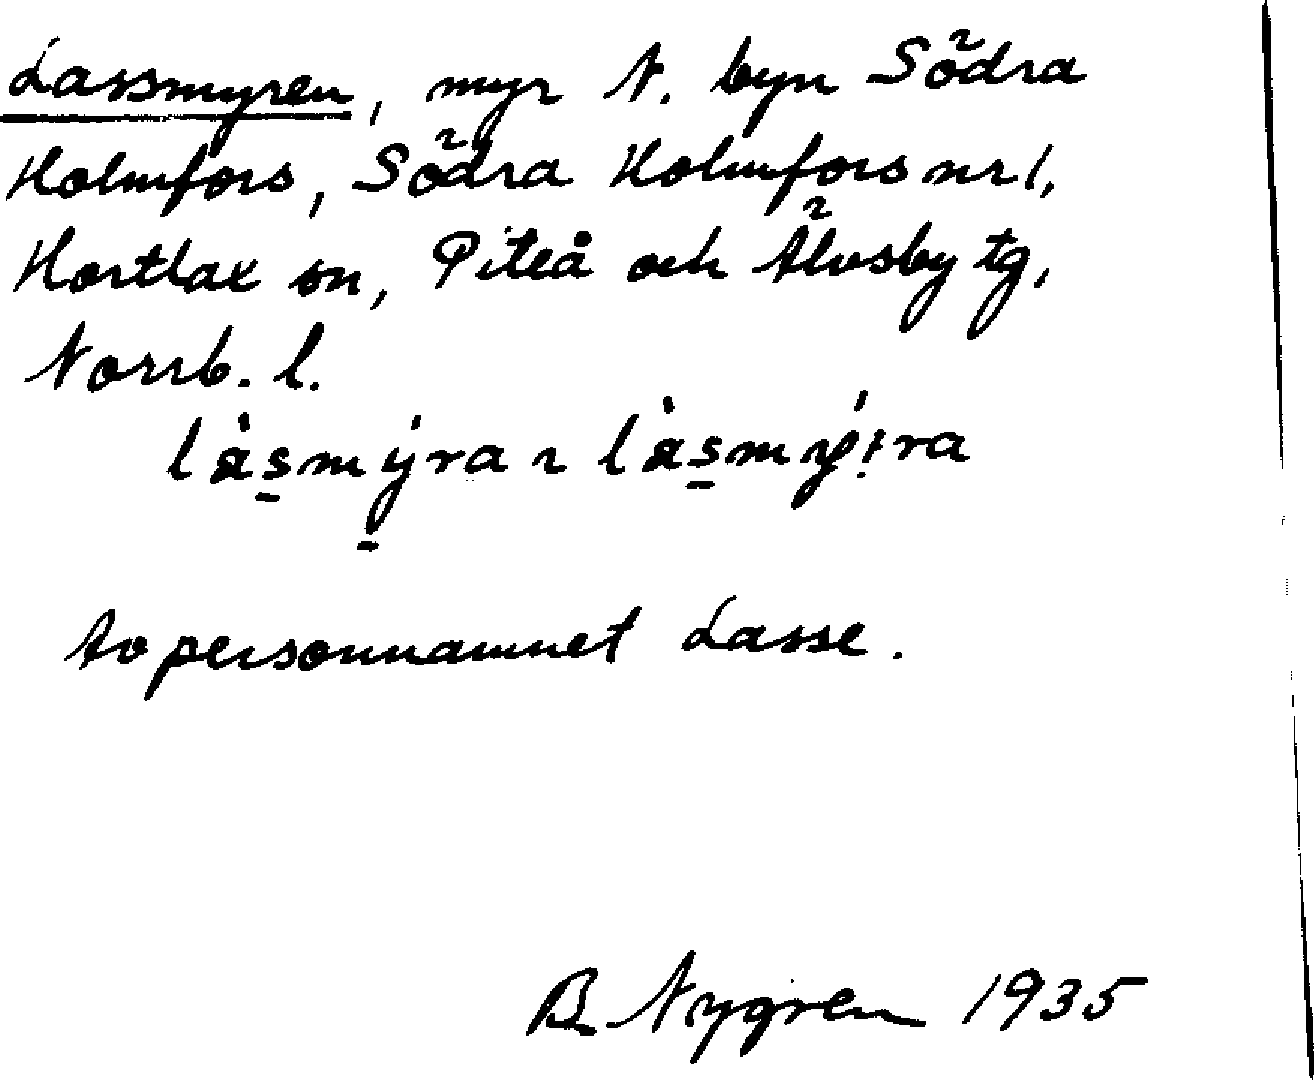 Lassmyren, myr N. byn Södra
Holmfors, Södra Holmfors nr 1,
Hortlax sn, Piteå och Älvsby tg,
Norrb. l.
Av personnamnet Lasse.
B. Nygren 1935